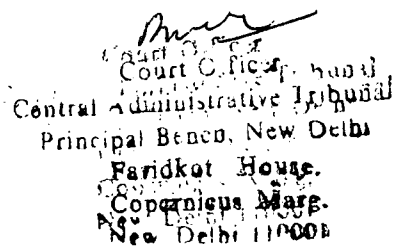 Court Officer
Central Administrative Tribunal
Principal Bench, New Delhi
Faridkot House.
Copernicus Marg.
New Delhi 110001